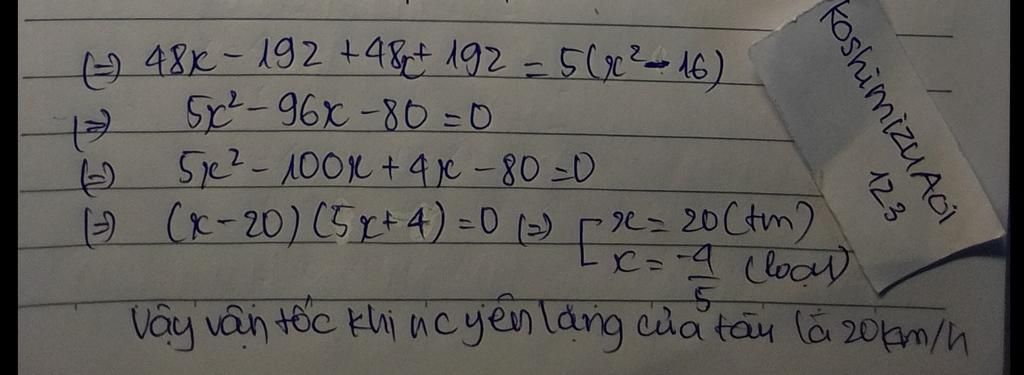 (=) 48x - 192 + 48x + 192 = 5(x² - 16)
(=) 5x² - 96x - 80 = 0
(=) 5x² - 100x + 4x - 80 = 0
(=) (x - 20)(5x + 4) = 0 (=) [ x = 20 (tm)
x = -4/5 (loại)
Vậy vận tốc khi nc yên lặng của tàu là 20km/h
Koshimizu Aoi
123